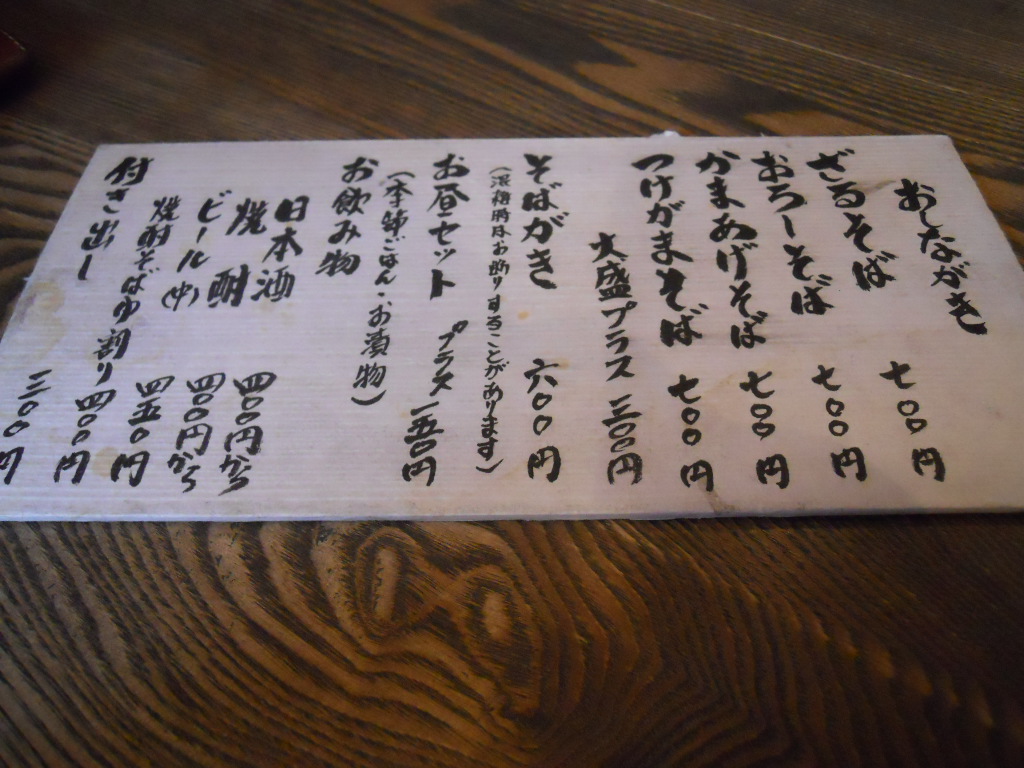 おしながき
ざるそば 七〇〇円
おろしそば 七〇〇円
かまあげそば 七〇〇円
つけがまそば 七〇〇円
大盛プラス 三〇〇円
そばがき 六〇〇円
(混雑時はお断りすることがあります)
お昼セット プラス一五〇円
(季節ごはん・お漬物)
お飲み物
日本酒 四〇〇円から
焼酎 四〇〇円から
ビール(中) 四五〇円
焼酎そばゆ割り 四〇〇円
付き出し 三〇〇円